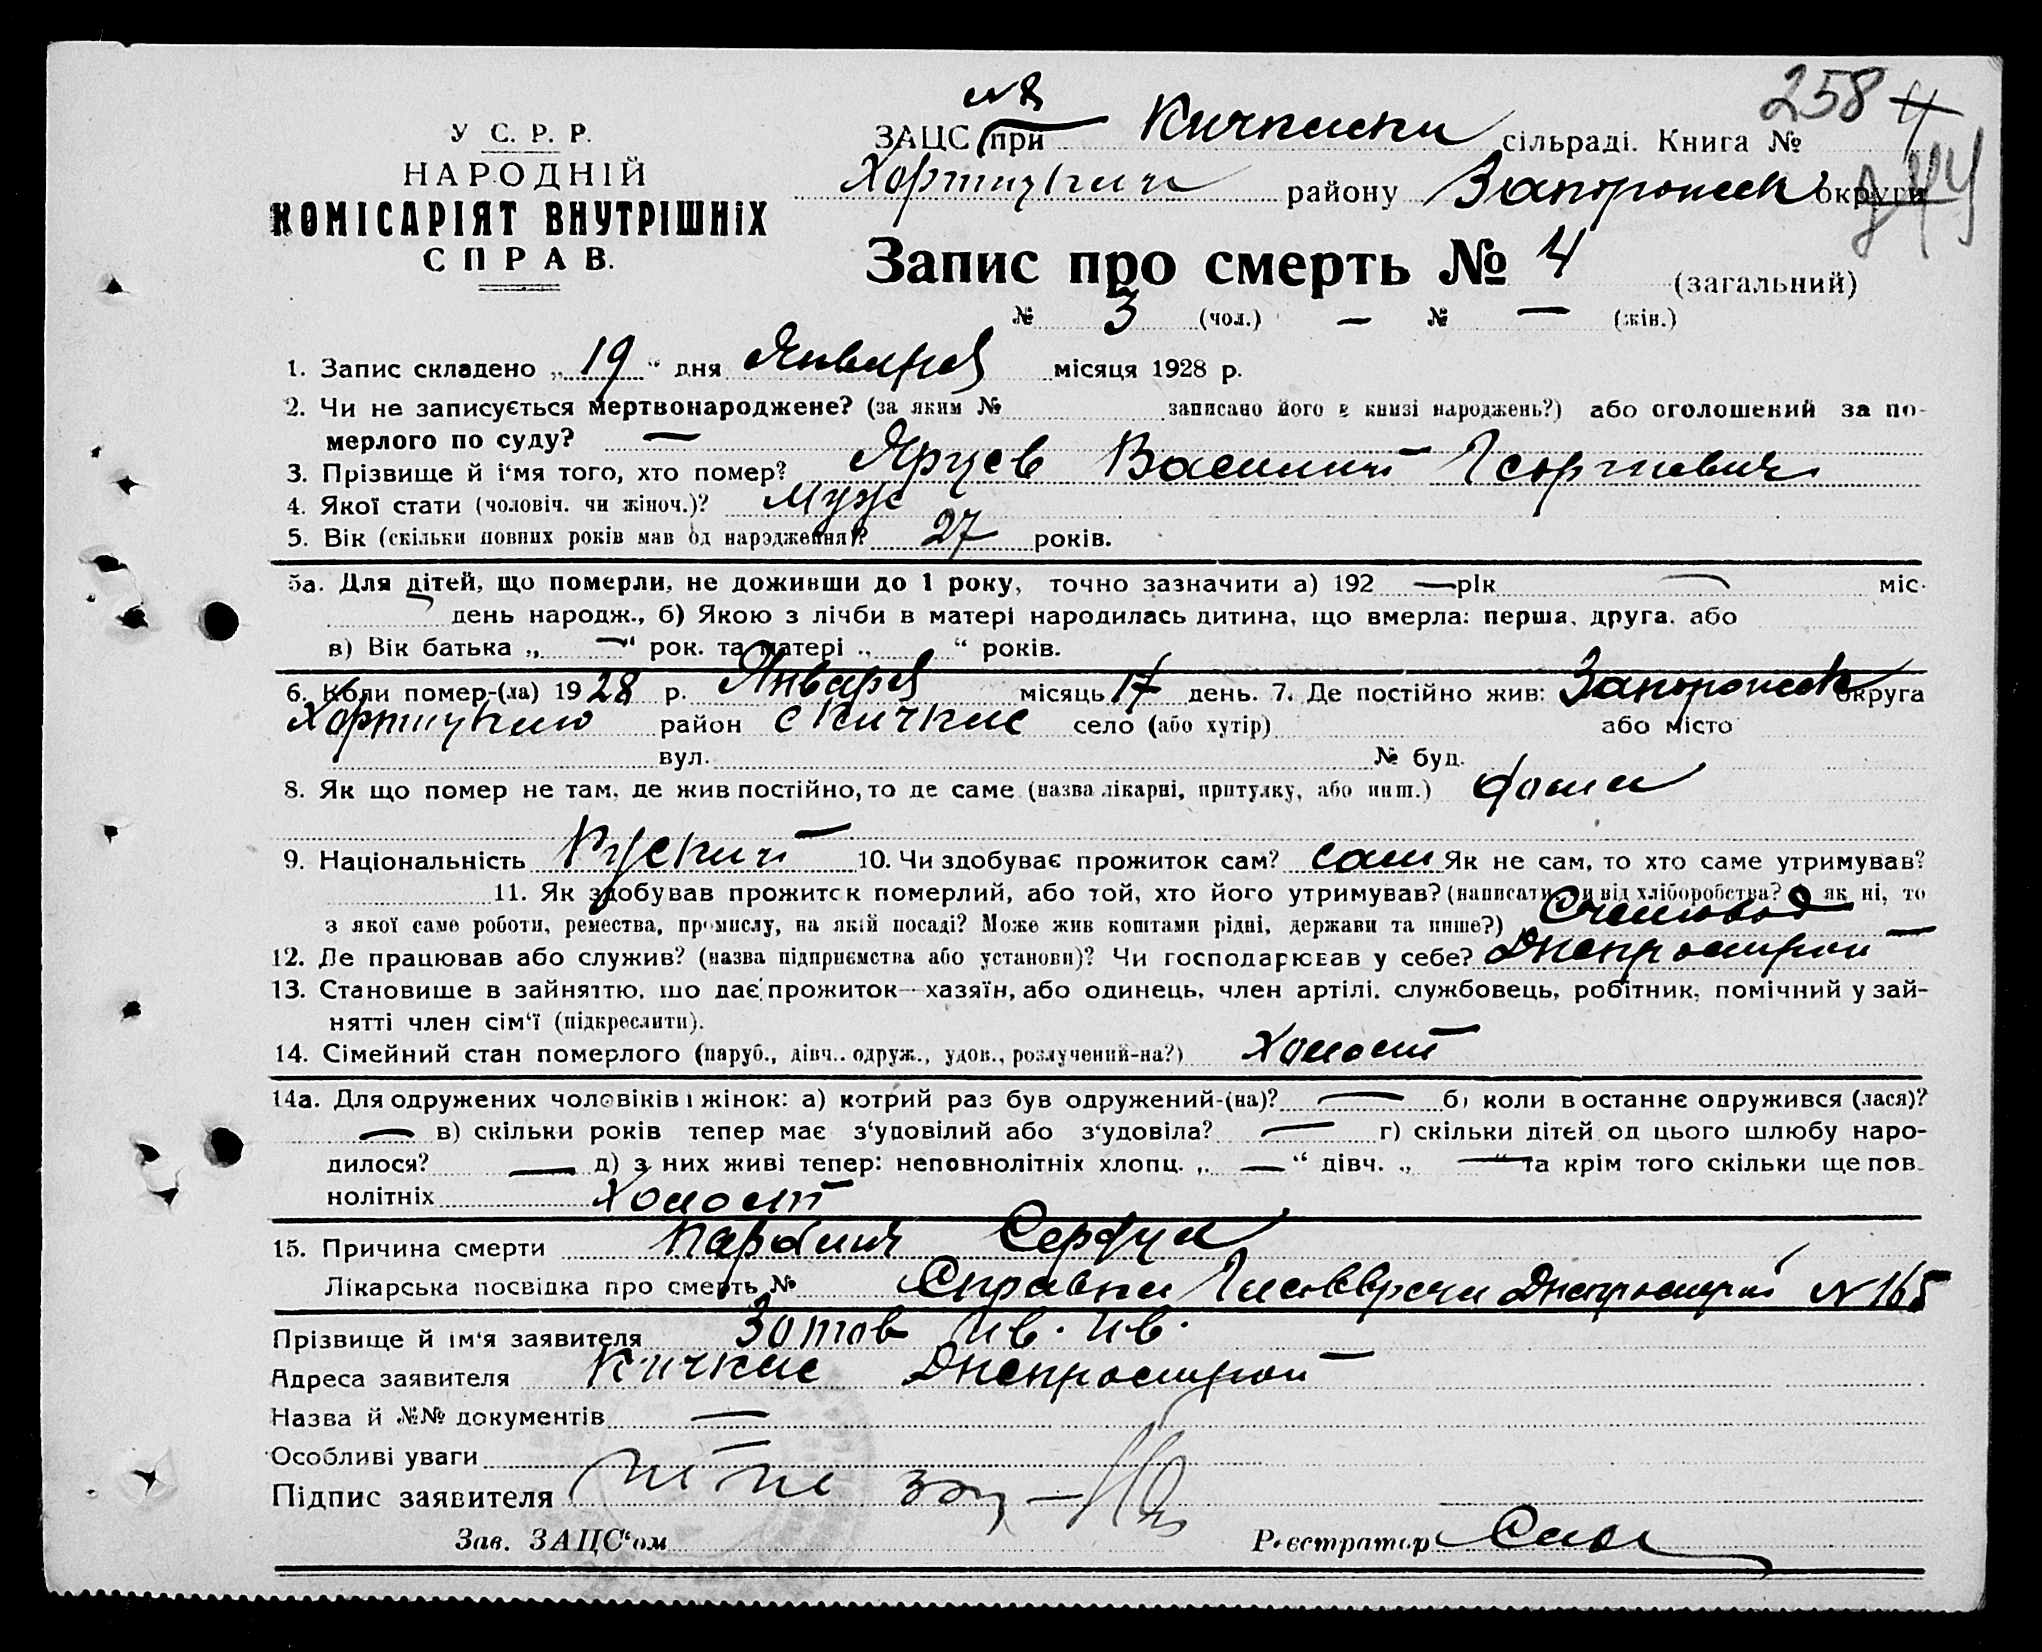 258 4
244
№
У С. Р. Р.
НАРОДНІЙ
КОМІСАРІЯТ ВНУТРІШНІХ
СПРАВ.
ЗАЦС при Кичкаски сільраді. Книга №
Хортицким району Запорожск округи
Запис про смерть № 4 (загальний)
№ 3 (чол.) — № — (жін.)
1. Запис складено „ 19 “ дня Января місяця 1928 р.
2. Чи не записується мертвонароджене? (за яким № записано його в книзі народжень?) або оголошений за по-
мерлого по суду? —
3. Прізвище й і'мя того, хто помер? Ярцев Василий Георгиевич
4. Якої стати (чоловіч. чи жіноч.)? Муж
5. Вік (скільки повних років мав од народження)? 27 років.
5а. Для дітей, що померли, не доживши до 1 року, точно зазначити а) 192 — рік — міс.
день народж., б) Якою з лічби в матері народилась дитина, що вмерла: перша, друга, або
в) Вік батька „ — “ рок. та матері „ “ років.
6. Коли помер-(ла) 1928 р. Января місяць 17 день. 7. Де постійно жив: Запорожск округа
Хортицким район с Кичкас село (або хутір) або місто
вул. № буд.
8. Як що помер не там, де жив постійно, то де саме (назва лікарні, притулку, або инш.) дома
9. Національність Руский 10. Чи здобуває прожиток сам? сам Як не сам, то хто саме утримував?
11. Як здобував прожиток померлий, або той, хто його утримував? (написати, чи від хліборобства? як ні, то
з якої саме роботи, ремества, промислу, на якій посаді? Може жив коштами рідні, держави та инше?) Счетовод
12. Де працював або служив? (назва підприємства або установи)? Чи господарював у себе? Днепрострой
13. Становище в зайняттю, що дає прожиток—хазяїн, або одинець, член артілі, службовець, робітник, помічний у зай-
нятті член сім'ї (підкреслити).
14. Сімейний стан померлого (паруб., дівч., одруж., удов., розлучений-на?) Холост
14а. Для одружених чоловіків і жінок: а) котрий раз був одружений-(на)? — б) коли востаннє одружився (лася)?
— в) скільки років тепер має з'удовілий або з'удовіла? — г) скільки дітей од цього шлюбу наро-
дилося? — д) з них живі тепер: неповнолітніх хлопц. „ — “ дівч. „ — “ та крім того скільки ще пов-
нолітніх Холост
15. Причина смерти Паралич Сердца
Лікарська посвідка про смерть № Справка Днепрострой № 165
Прізвище й ім'я заявителя Зотов Ив. Ив.
Адреса заявителя Кичкас Днепрострой
Назва й №№ документів —
Особливі уваги
Підпис заявителя
Зав. ЗАЦС'ом Реєстратор